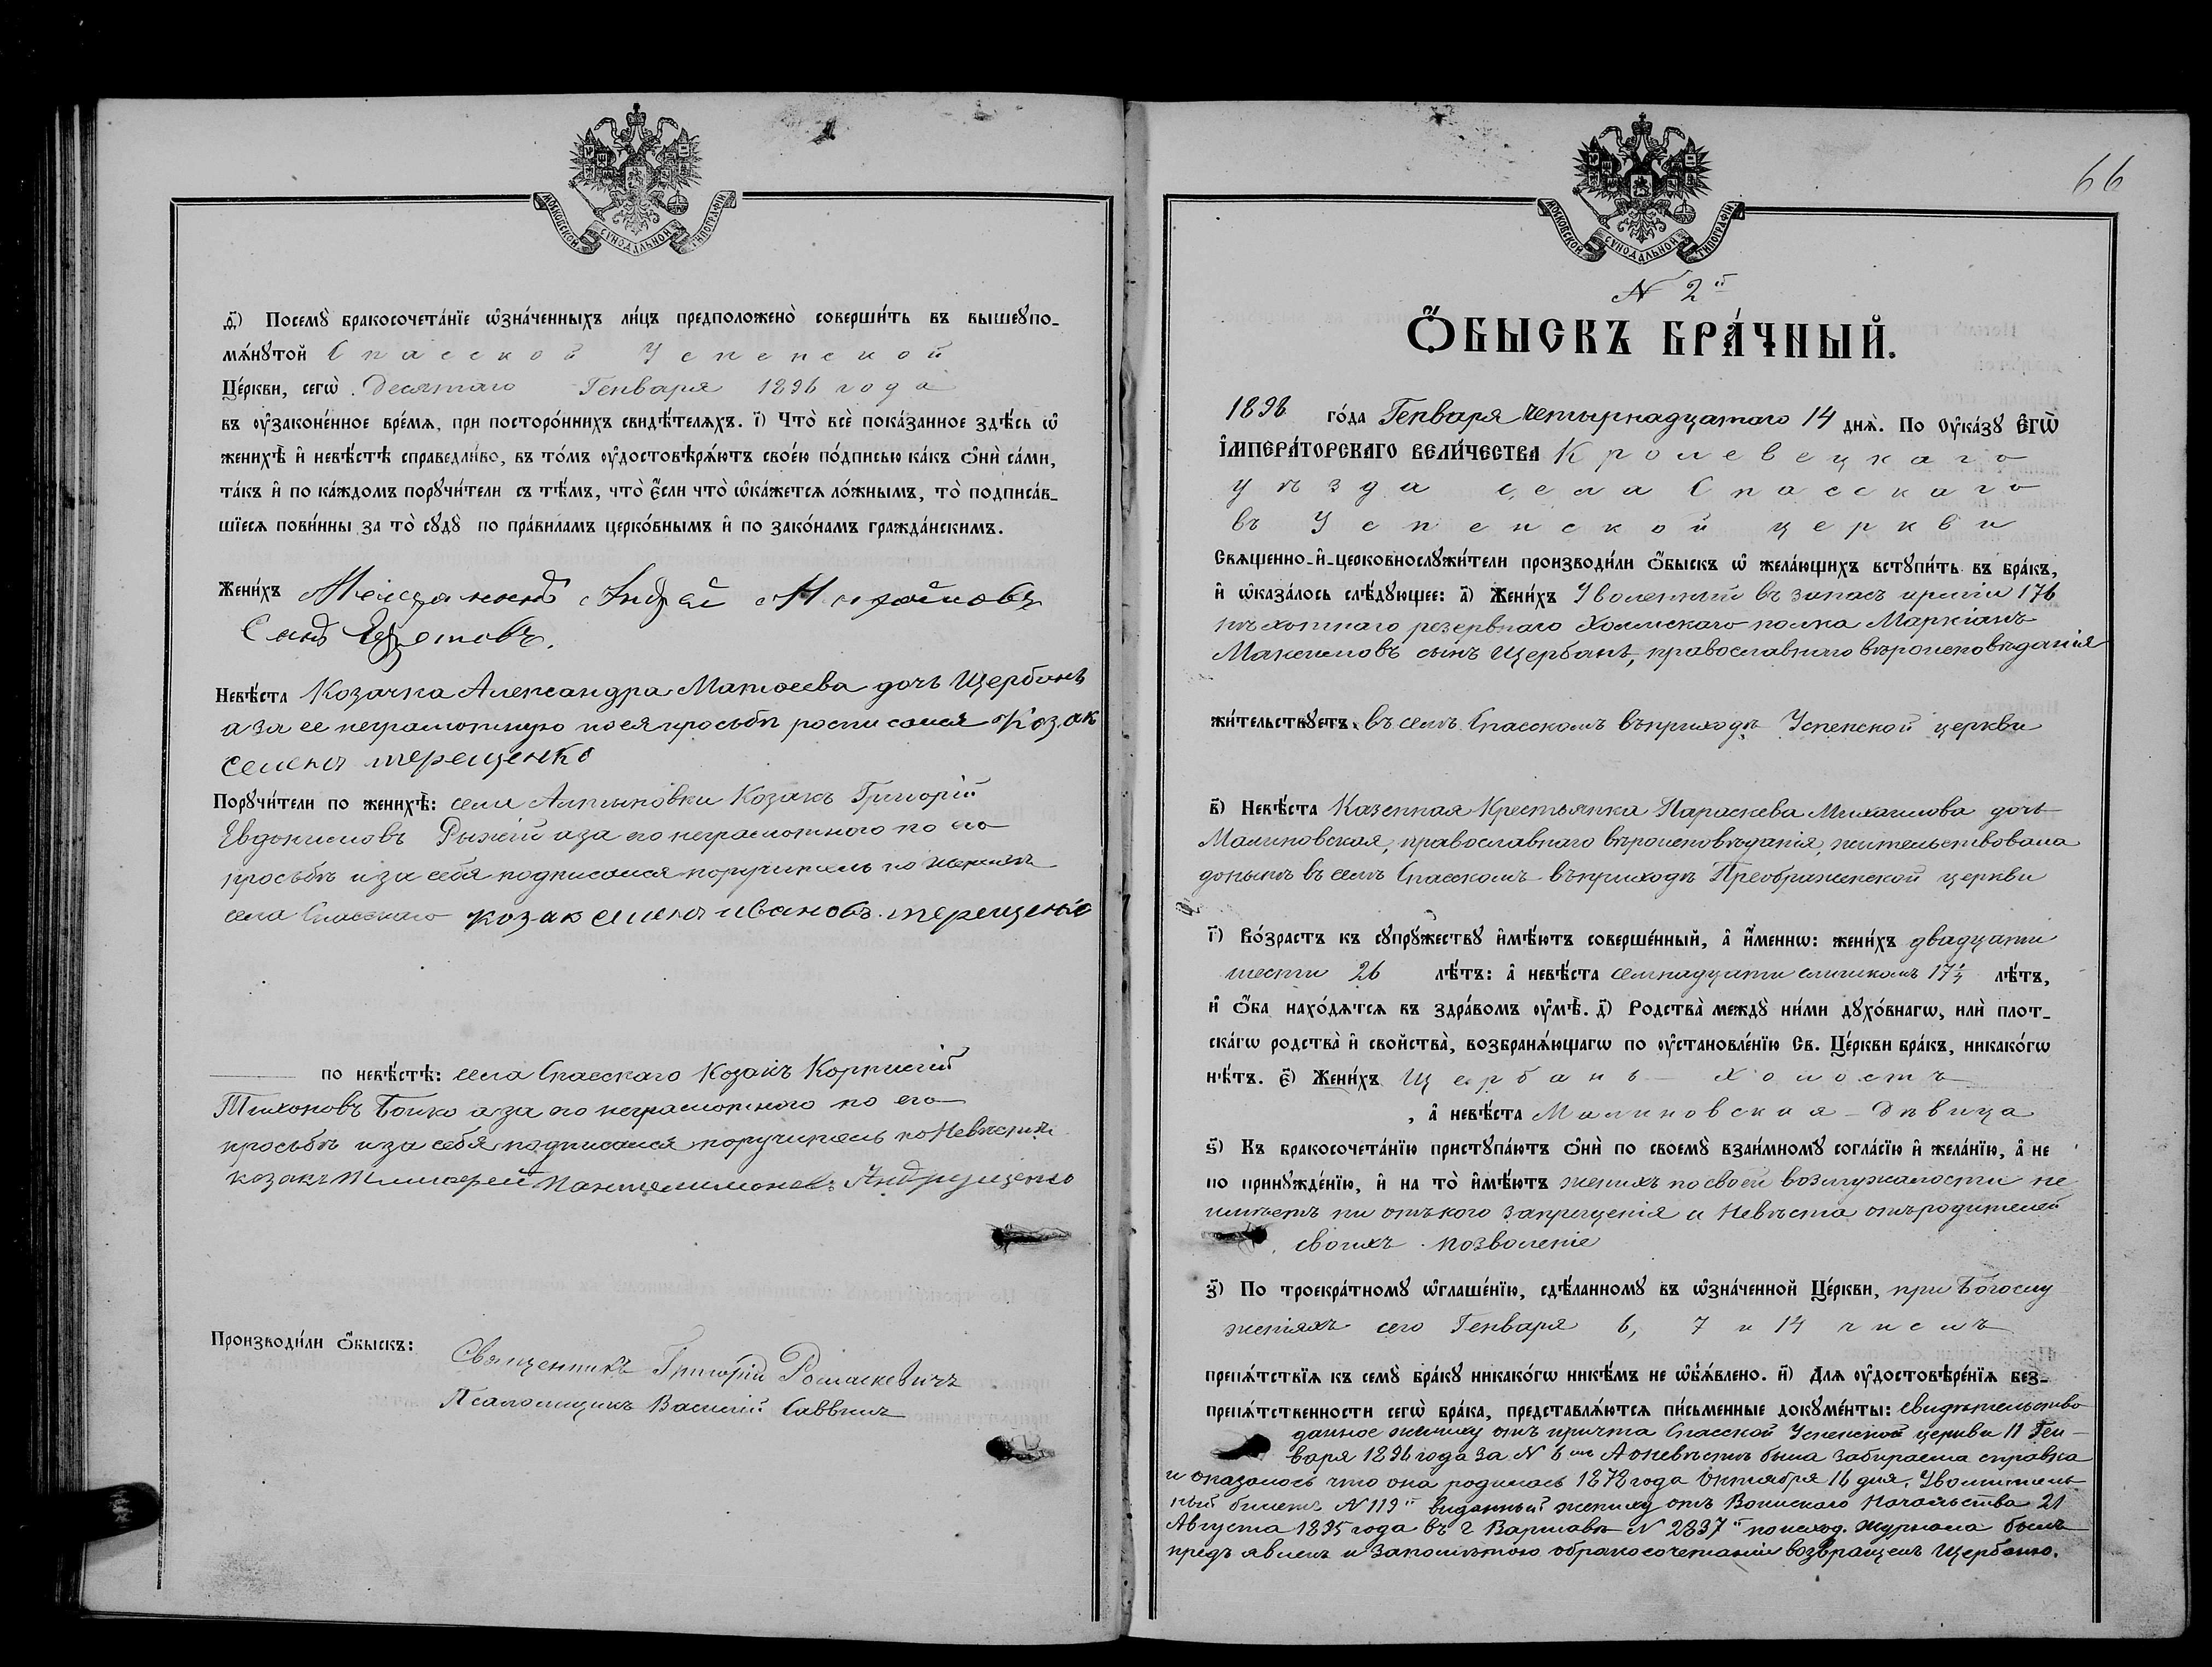 МОСКОВСКОЙ СѴНОДАЛЬНОЙ ТИПОГРАФІИ
ѳ҃) Посемꙋ̀ бракосочета́нїе ѡ҆зна́ченныхъ ли́цъ предположено̀ соверши́ть въ вышеꙋпо-
мѧ́нꙋтой Спасской Успенской
Це́ркви, сегѡ̀ Десятаго Генваря 1896 года
въ ᲂу҆законе́нное вре́мѧ, при посторо́ннихъ свидѣ́телѧхъ. і҃) Что̀ всѐ пока́занное здѣ́сь ѡ҆
женихѣ̀ и҆ невѣ́стѣ справедли́во, въ то́мъ ᲂу҆достовѣрѧ́ютъ свое́ю по́дписью ка́къ ѻ҆нѝ са́ми,
та́къ и҆ по ка́ждомъ порꙋчи́тели съ тѣ́мъ, что̀ є҆́сли что̀ ѡ҆ка́жетсѧ ло́жнымъ, то̀ подписа́в-
шїесѧ пови́нны за то̀ сꙋдꙋ̀ по пра́виламъ церко́внымъ и҆ по зако́намъ гражда́нскимъ.
Жени́хъ Мещанинъ Андрей
Сынъ
Невѣ́ста Козачка Александра Матѳеева дочь Щербанъ
а за ее неграмотную по ея просьбѣ росписался Козак
семенъ терещенко
Порꙋчи́тели по женихѣ̀: села Алтыновки Козакъ Григорій
Евдокимовъ Рыжій а за его неграмотного по его
просьбѣ и за себя подписался поручитель по женихѣ
села Спасскаго козак семенъ ивановъ терещенко
по невѣ́стѣ: села Спасскаго Козакъ Корнилій
Тихоновъ Бойко а за его неграмотного по его
просьбѣ и за себя подписался поручитель по Невѣстѣ
козакъ Тимоѳей Пантелимоновъ Андрущенко
Производи́ли ѻ҆́быскъ:
Священникъ Григорій Ромаскевичъ
Псаломщикъ Василій Саввичъ
66
МОСКОВСКОЙ СѴНОДАЛЬНОЙ ТИПОГРАФІИ
N 2й
Ѻ҆́БЫСКЪ БРА́ЧНЫЙ.
1896 го́да Генваря четырнадцатаго 14 днѧ̀. По Оу҆ка́зꙋ Є҆ГѠ̀
І҆МПЕРА́ТОРСКАГО ВЕЛИ́ЧЕСТВА Кролевецкаго
уѣзда села Спасскаго
въ Успенской церкви
Свѧщенно-и҆-церковнослꙋжи́тели производи́ли ѻ҆́быскъ ѡ҆ жела́ющихъ встꙋпи́ть въ бра́къ,
и҆ ѡ҆каза́лось слѣ́дꙋющее: а҃) Жени́хъ Уволенный въ запасъ арміи 176
пѣхотнаго резервнаго Холмскаго полка Маркіанъ
Максимовъ сынъ Щербанъ, православнаго вѣроисповѣданія
жи́тельствꙋетъ въ селѣ Спасскомъ въ приходѣ Успенской церкви
в҃) Невѣ́ста Казенная Крестьянка Параскева Михаилова дочь
Малиновская, православнаго вѣроисповѣданія, жительствовала
донынѣ въ селѣ Спасскомъ въ приходѣ Преображенской церкви
г҃) Во́зрастъ къ сꙋпрꙋ́жествꙋ и҆мѣ́ютъ соверше́нный, а҆ и҆́меннѡ: жени́хъ двадцати
шести 26 лѣ́тъ: а҆ невѣ́ста семнадцати слишкомъ 17¼ лѣ́тъ,
и҆ ѻ҆́ба нахо́дѧтсѧ въ здра́вомъ ᲂу҆мѣ̀. д҃) Родства̀ междꙋ̀ ни́ми дꙋхо́внагѡ, илѝ плот-
ска́гѡ родства̀ и҆ свойства̀, возбранѧ́ющагѡ по ᲂу҆становле́нїю Св. Це́ркви бра́къ, никако́гѡ
нѣ́тъ. є҃) Жени́хъ Щербанъ – холостъ
, а҆ невѣ́ста Малиновская – дѣвица
ѕ҃) Къ бракосочета́нїю пристꙋпа́ютъ ѻ҆нѝ по своемꙋ̀ взаи́мномꙋ согла́сїю и҆ жела́нїю, а҆ не
по принꙋжде́нїю, и҆ на то̀ и҆мѣ́ютъ женихъ по своей возмужалости не
имѣетъ ни отъ кого запрещенія а Невѣста отъ родителей
своихъ позволеніе
з҃) По троекра́тномꙋ ѡ҆глаше́нїю, сдѣ́ланномꙋ въ ѡ҆зна́ченной Це́ркви, при Богослу
женіяхъ сего Генваря 6, 7 и 14 числъ
препѧ́тствїѧ къ семꙋ̀ бра́кꙋ никако́гѡ никѣ́мъ не ѡ҆б̾ѧ́влено. и҃) Длѧ ᲂу҆достовѣре́нїѧ без-
препѧ́тственности сегѡ̀ бра́ка, представлѧ́ютсѧ пи́сьменные докꙋме́нты: свидѣтельство
данное жениху отъ причта Спасской Успенской церкви 11 Ген-
варя 1896 года за N 6мъ А о невѣстѣ была забираема справка
и оказалось что она родилась 1878 года Октября 16 дня. Уволитель
ный билетъ N 119й выданный жениху отъ Воинскаго Начальства 21
Августа 1895 года въ г Варшавѣ N 2837й по исход. журнала былъ
предъявленъ и За помѣтою о бракосочетаніи возвращенъ Щербаню.